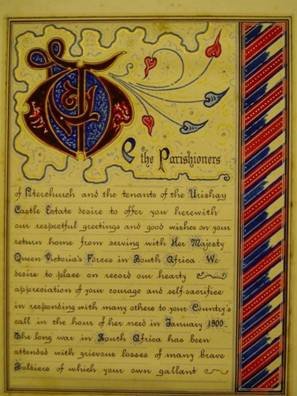 We the Parishioners
of Peterchurch and the tenants of the Urishay
Castle Estate desire to offer you herewith
our respectful greetings and good wishes on your
return home from serving with Her Majesty
Queen Victoria's Forces in South Africa. We
desire to place on record our hearty
appreciation of your courage and self-sacrifice
in responding with many others to your Country's
call in the hour of her need in January 1900.
The long war in South Africa has been
attended with grievous losses of many brave
Soldiers of which your own gallant